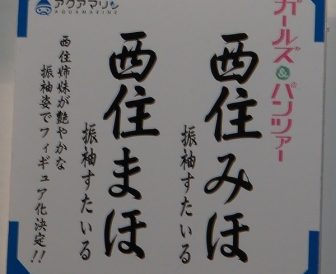 アクアマリン
AQUAMARINE
ガールズ&パンツァー
西住みほ
振袖すたいる
西住まほ
振袖すたいる
西住姉妹が艶やかな
振袖姿でフィギュア化決定!!